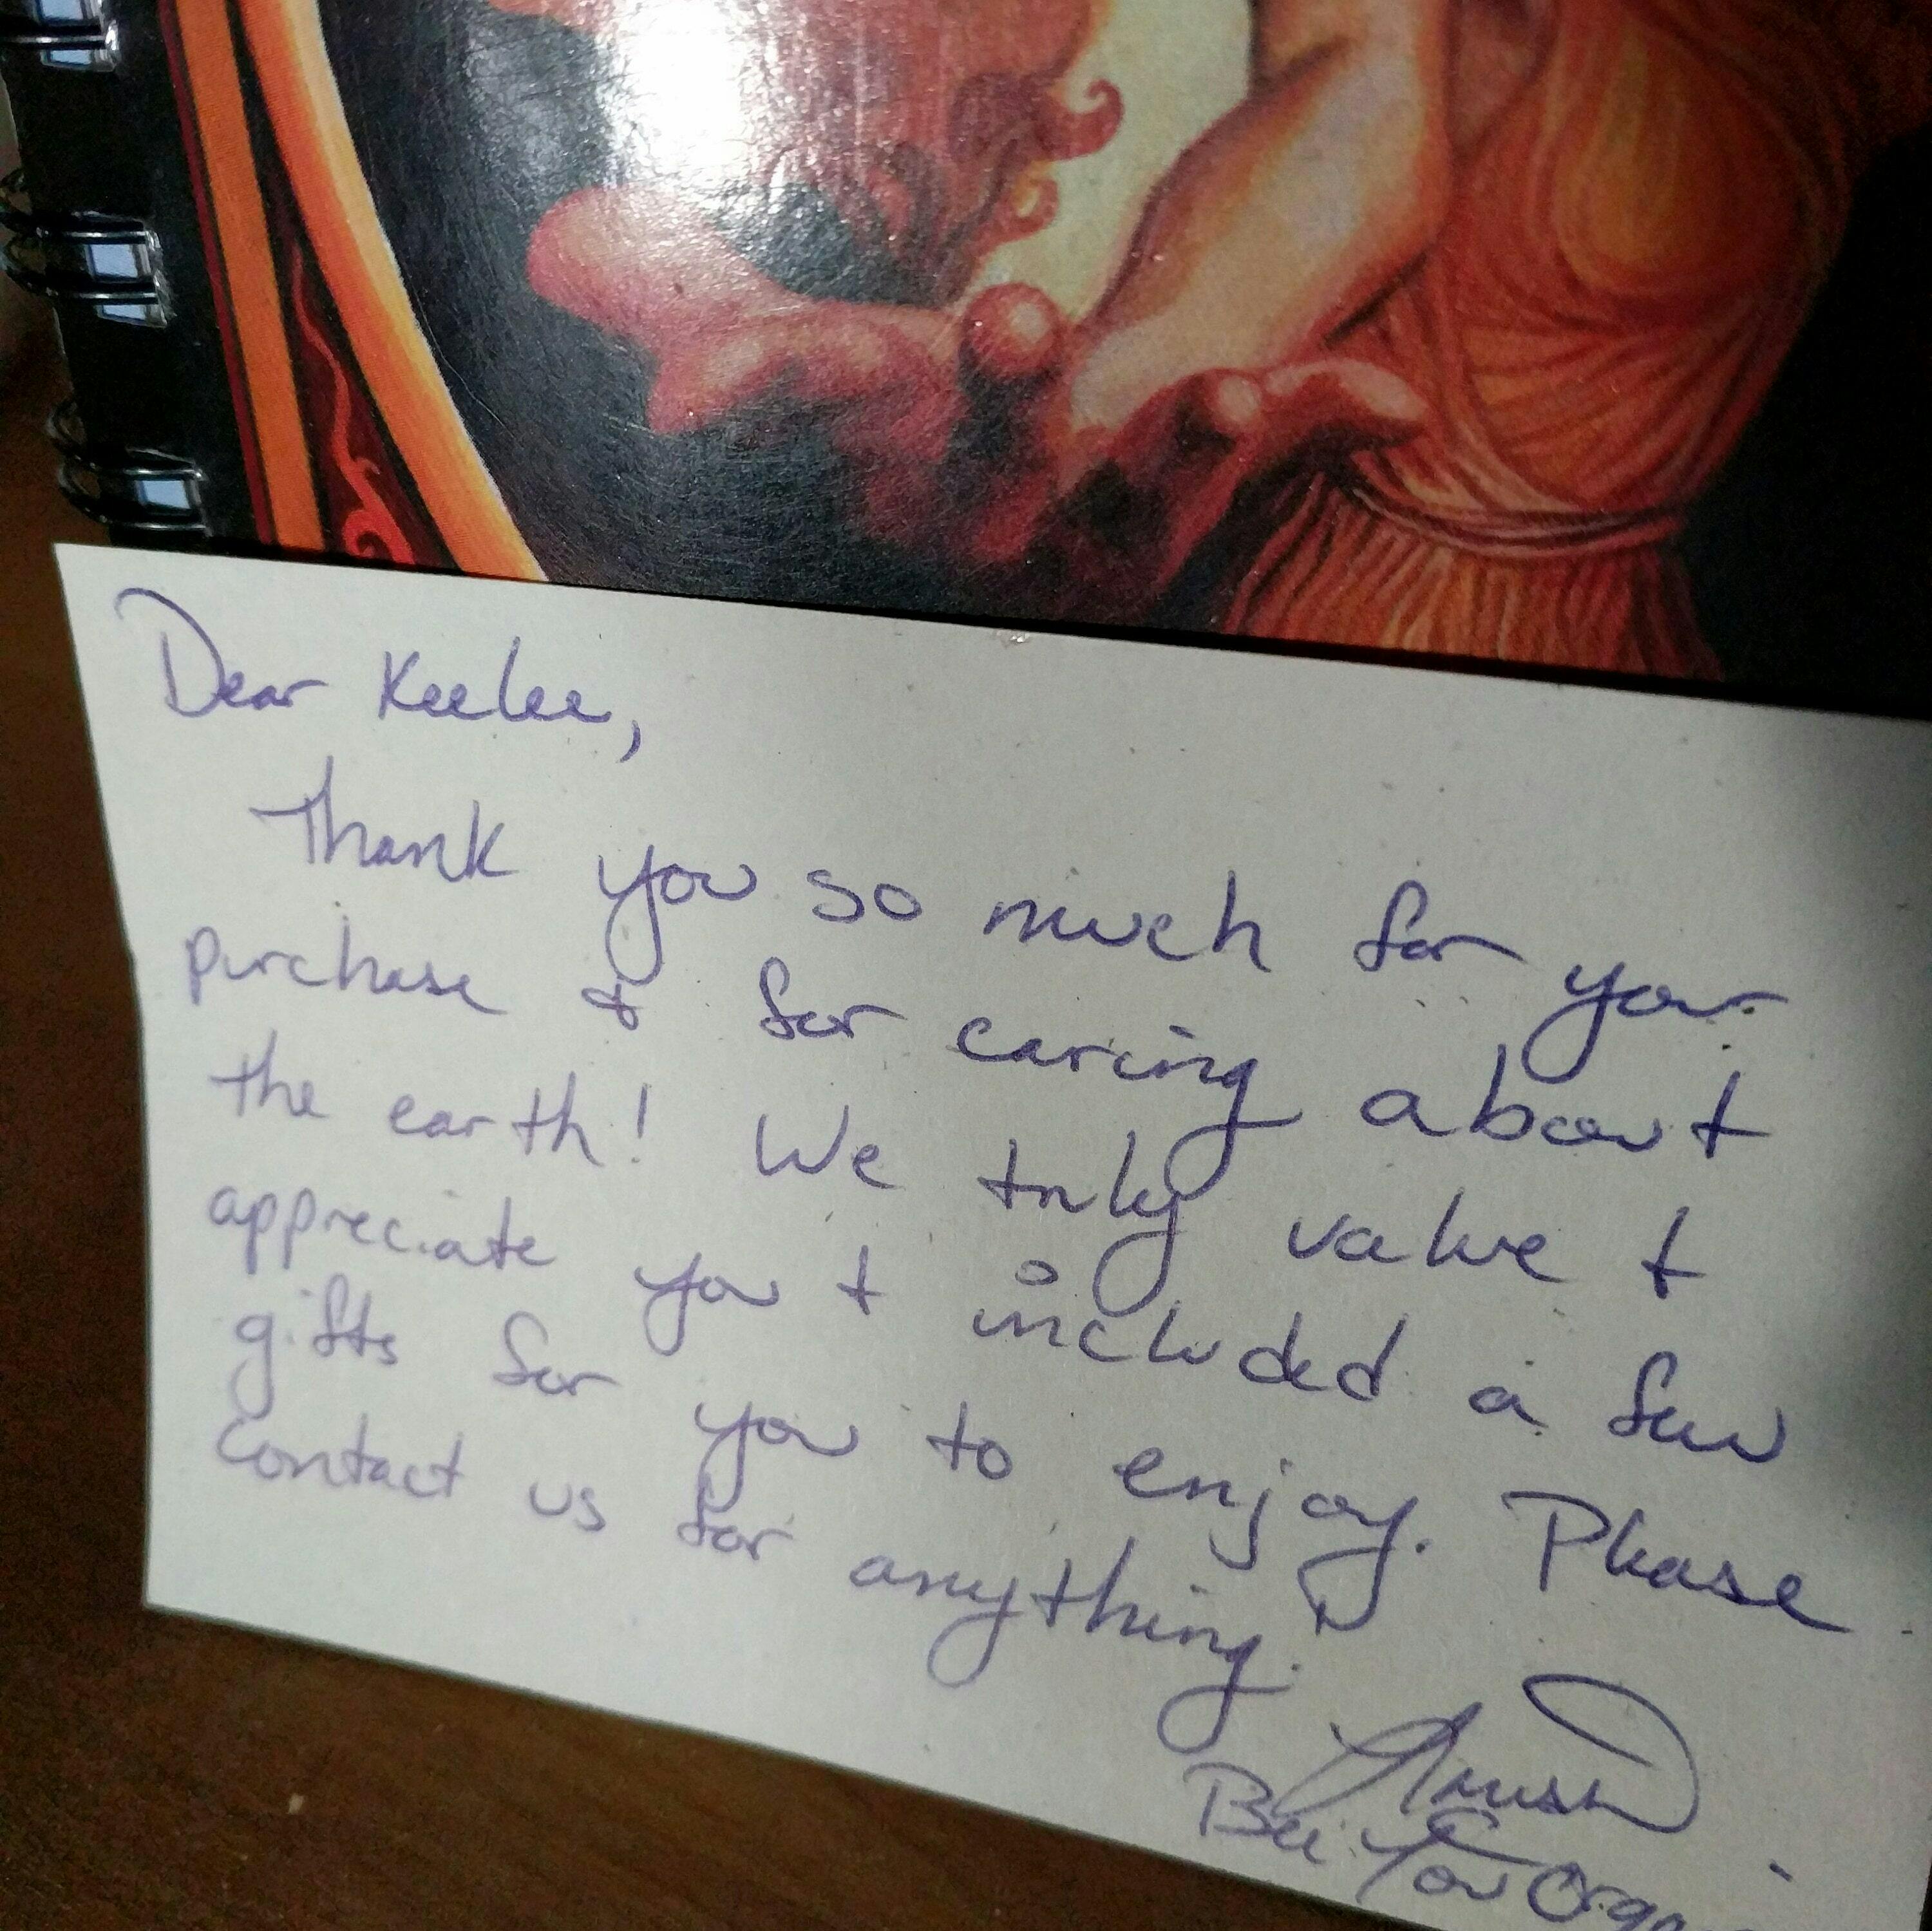 Dear Keelee,
Thank you so much for your
purchase & for caring about
the earth! We truly value &
appreciate you & included a few
gifts for you to enjoy. Please
contact us for anything.
Bee You